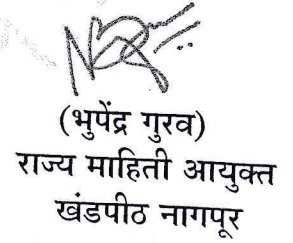 (भुपेंद्र गुरव)
राज्य माहिती आयुक्त
खंडपीठ नागपूर